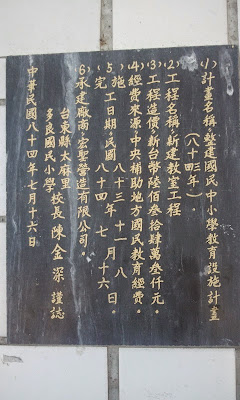 (1)計畫名稱：整建國民中小學教育設施計畫
（八十三四年）。
(2)工程名稱：新建教室工程
(3)工程造價：新台幣陸佰叁拾肆萬叁仟元。
(4)經費來源：中央補助地方國民教育經費。
(5)施完工日期：民國八十三年十一月八日。
八十四 七 十六
(6)承建廠商：宏聖營造有限公司。
台東縣太麻里
多良國民小學 校長 陳金深 謹誌
中華民國八十四年七月十六日